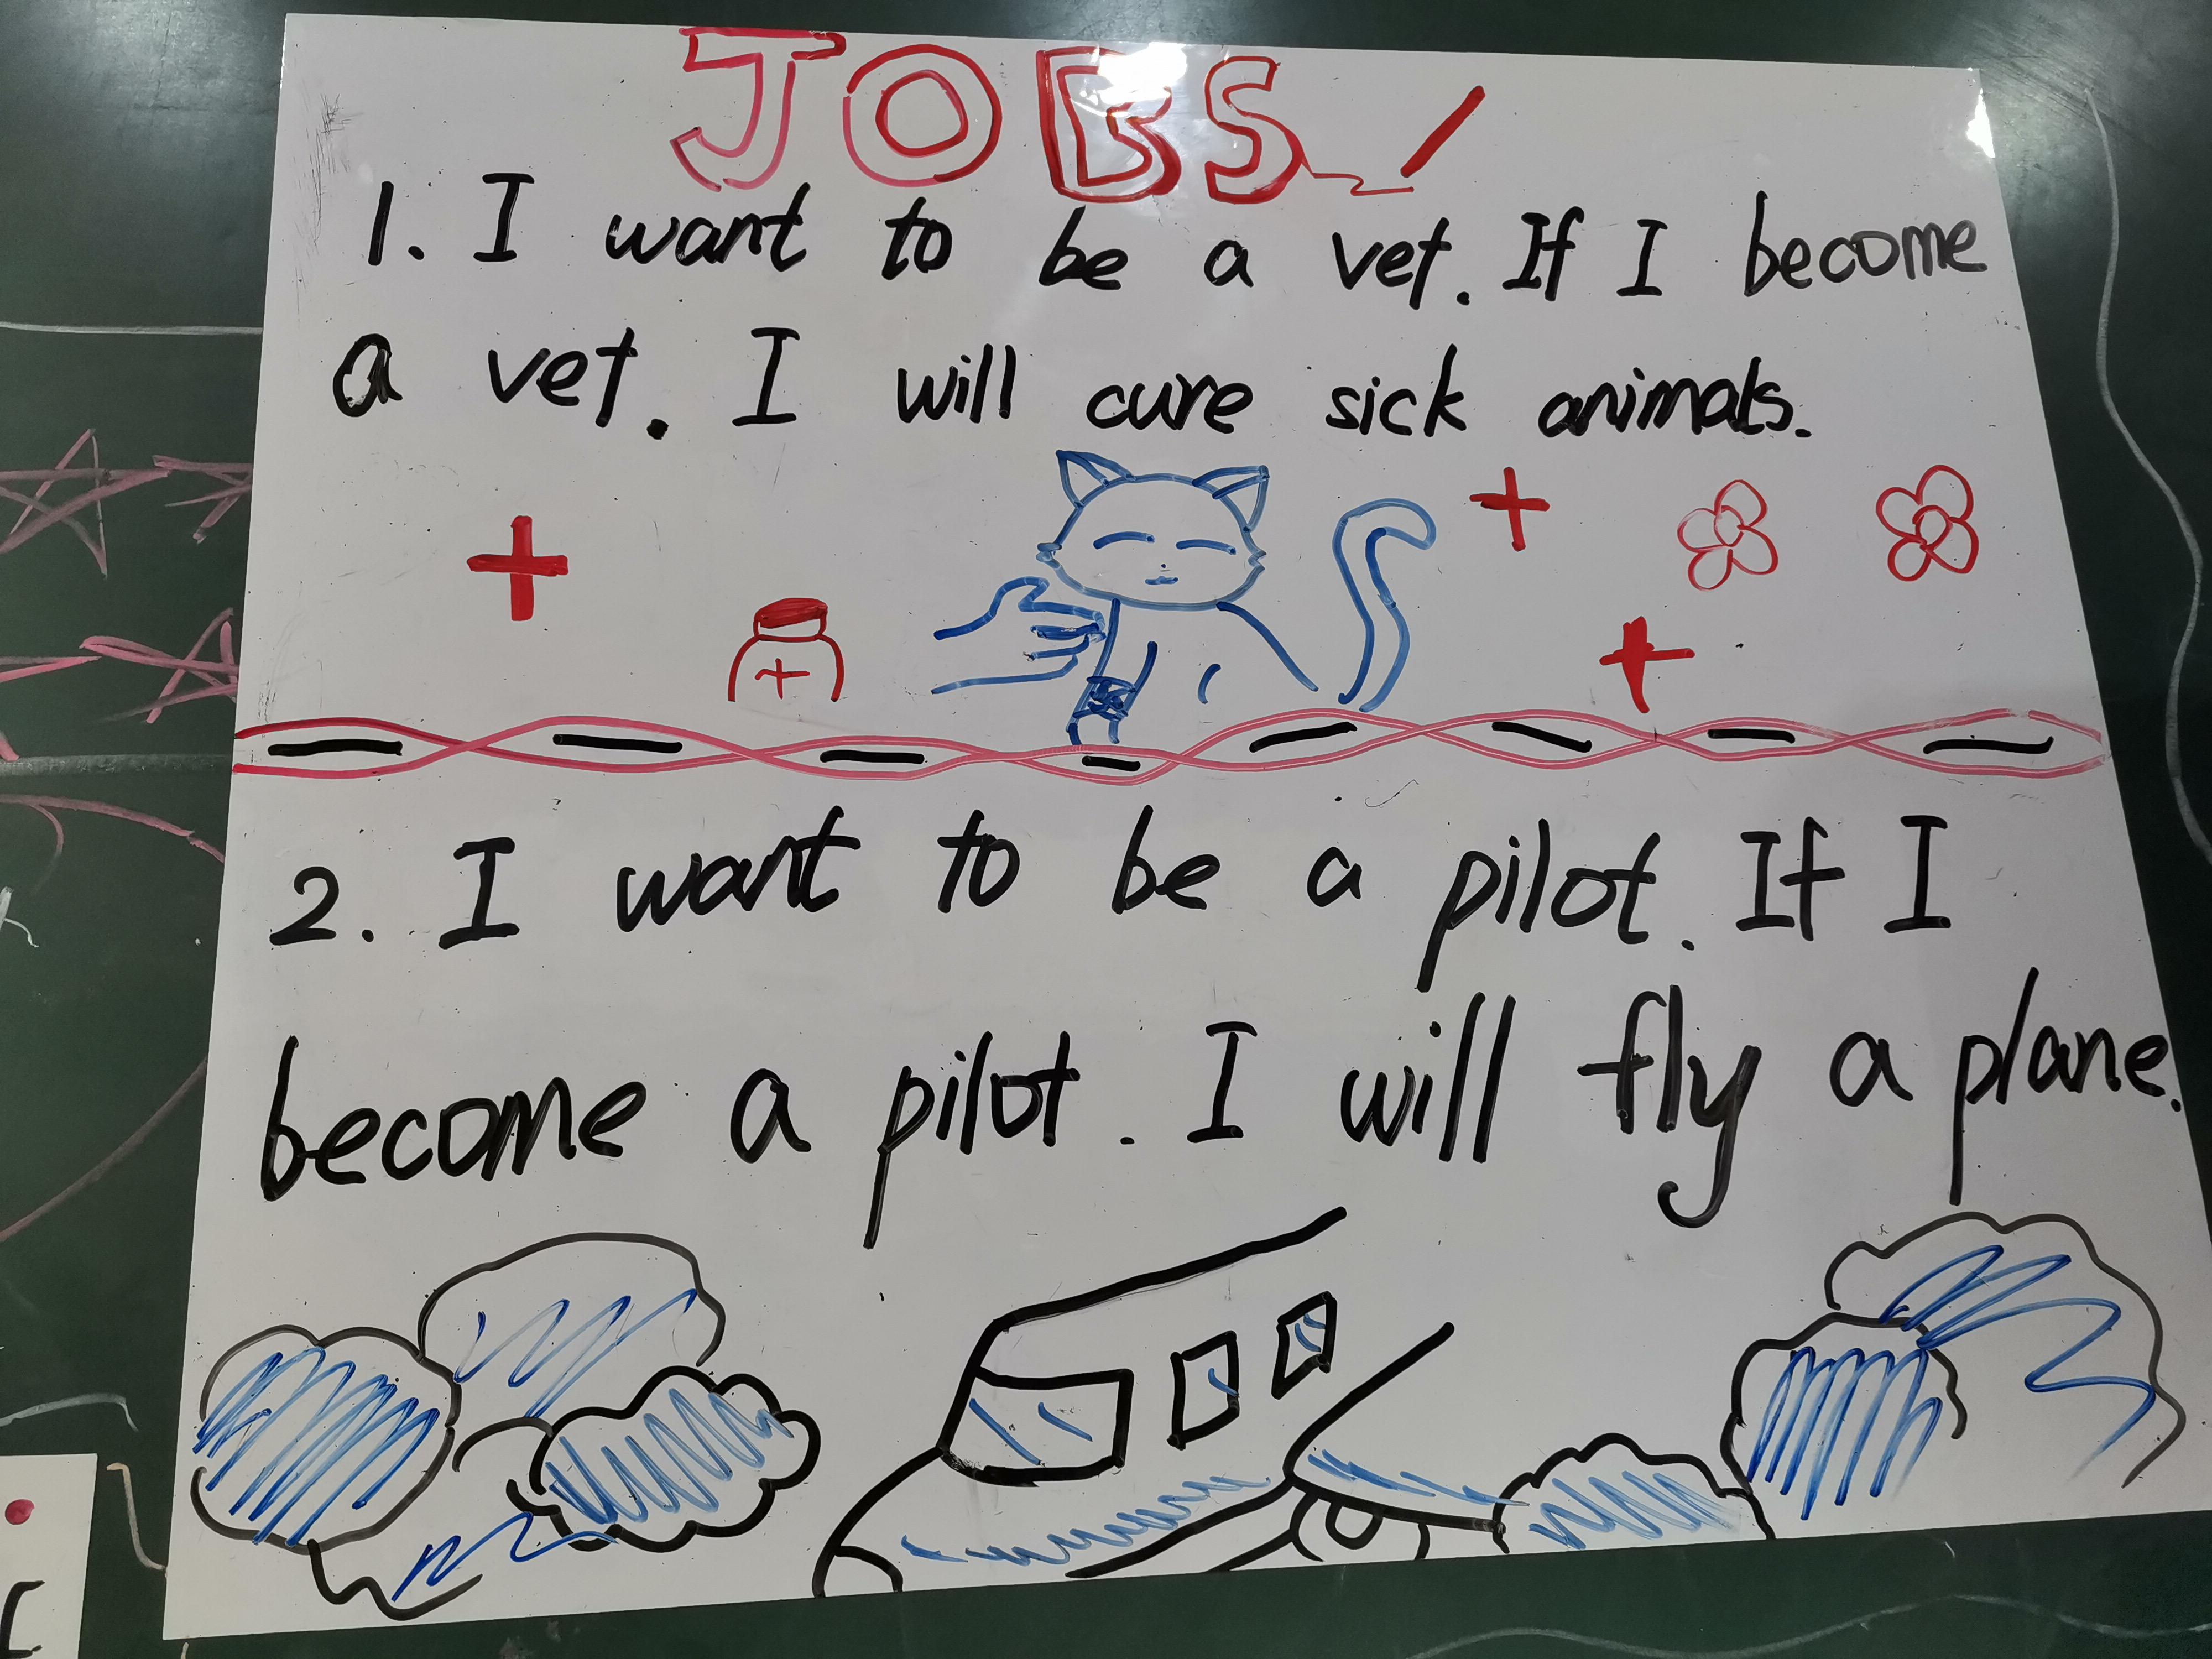 JOBS
1. I want to be a vet. If I become
a vet. I will cure sick animals.
2. I want to be a pilot. If I
become a pilot. I will fly a plane.